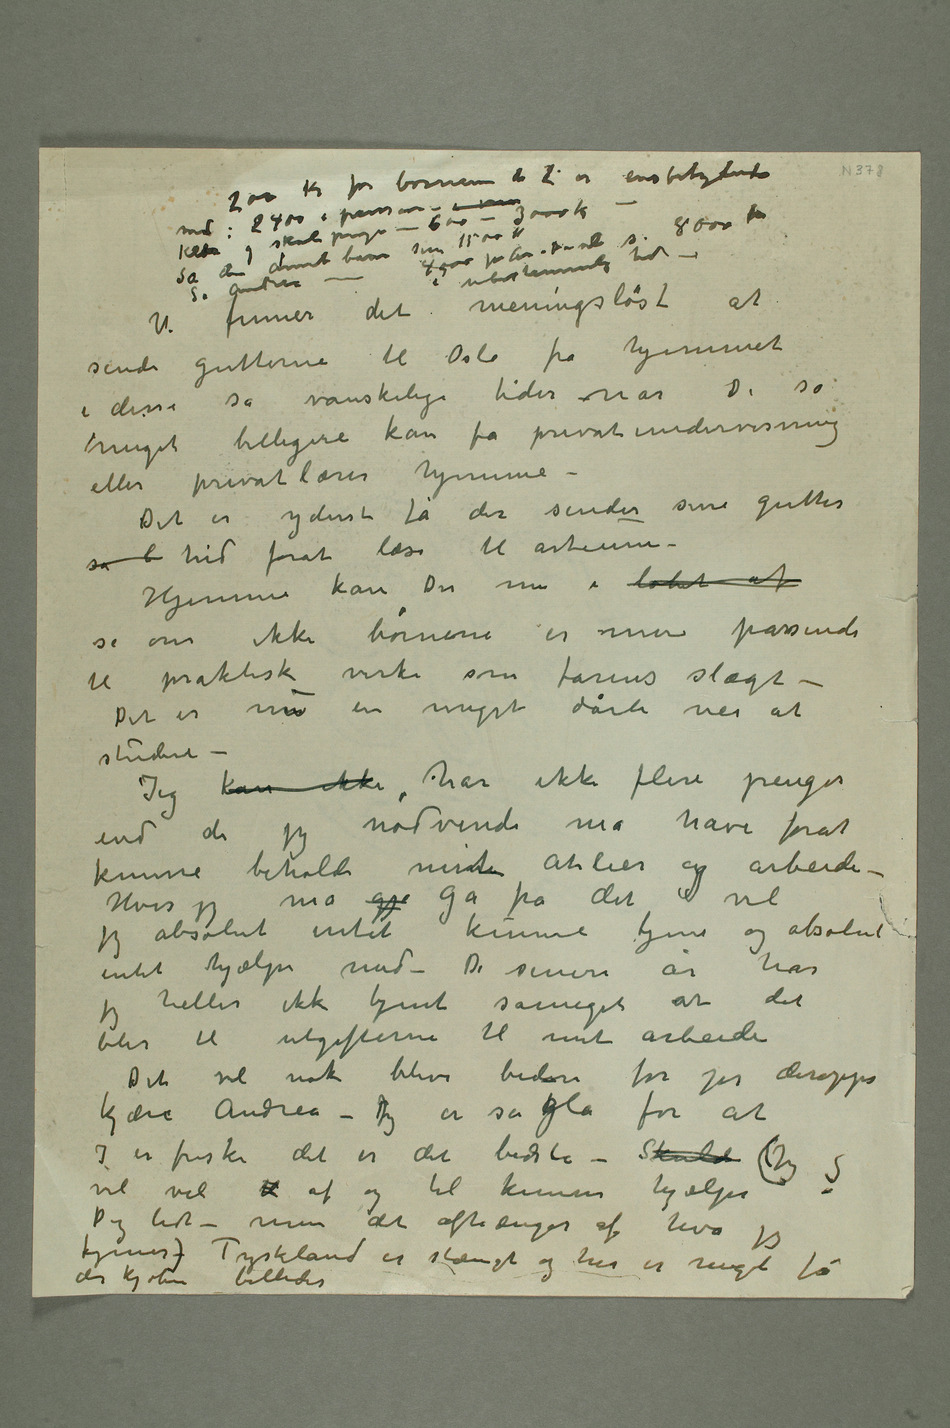 N 378
200 kr for børnene de 2 er ensbetydende
med: 2400 i pension –
Klær og skolepenge – 600 – 3000 k –
Så
Så andre – 8000 kr
i ubestemmelig tid –
V. finner det meningsløst at
sende gutterne til Oslo fra hjemmet
i disse så vanskelige tider når De så
meget billigere kan få privatundervisning
eller privatlærer hjemme –
Det er yderst få der sender sine gutter
så hid forat læse til artium –
Hjemme kan De nu i løbet af
se om ikke børnene er mere passende
til praktisk virke som farens slægt –
Det er nu en meget dårli vei at
studere –
Jeg kan ikke, har ikke flere penger
end de jeg nødvendi må have forat
kunne beholde mit atelier og arbeide –
Hvis jeg må gå fra det vil
jeg absolut intet kunne tjene og absolut
intet hjælpe med – De senere år har
jeg heller ikke tjent såmeget at det
blir til utgifterne til mit arbeide
Det vil nok blive bedre for jer deroppe
Kjære Andrea – Jeg er så gla for at
I er friske det er det bedste – Skulde (Jeg
vil vel af og til kunne hjælpe
Dig lidt – men det afhænger af hva jeg
tjener) Tyskland er stængt og her er meget få
der kjøber billeder